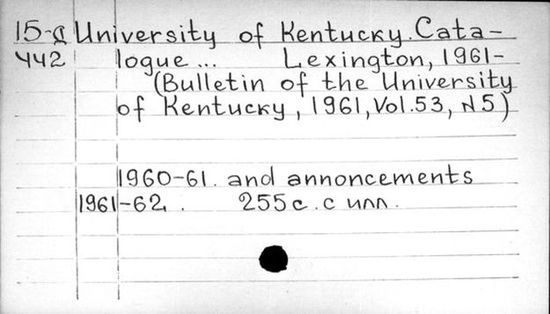 15-a University of Kentucky. Cata-
442 logue ... Lexington, 1961-
(Bulletin of the University
of Kentucky, 1961, Vol.53, N5)
1960-61. and annoncements
1961-62. 255 c. с илл.